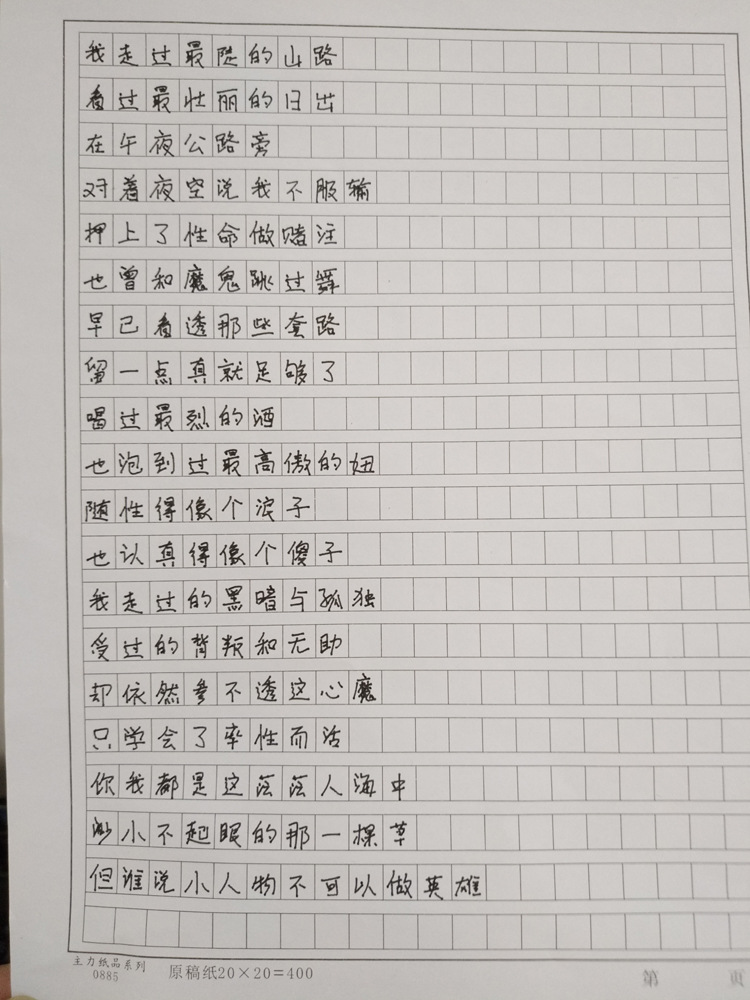 我走过最陡的山路
看过最壮丽的日出
在午夜公路旁
对着夜空说我不服输
押上了性命做赌注
也曾和魔鬼跳过舞
早已看透那些套路
留一点真就足够了
喝过最烈的酒
也泡到过最高傲的妞
随性得像个浪子
也认真得像个傻子
我走过的黑暗与孤独
受过的背叛和无助
却依然参不透这心魔
只学会了率性而活
你我都是这茫茫人海中
渺小不起眼的那一棵草
但谁说小人物不可以做英雄
主力纸品系列
0885 原稿纸20×20=400 第 页